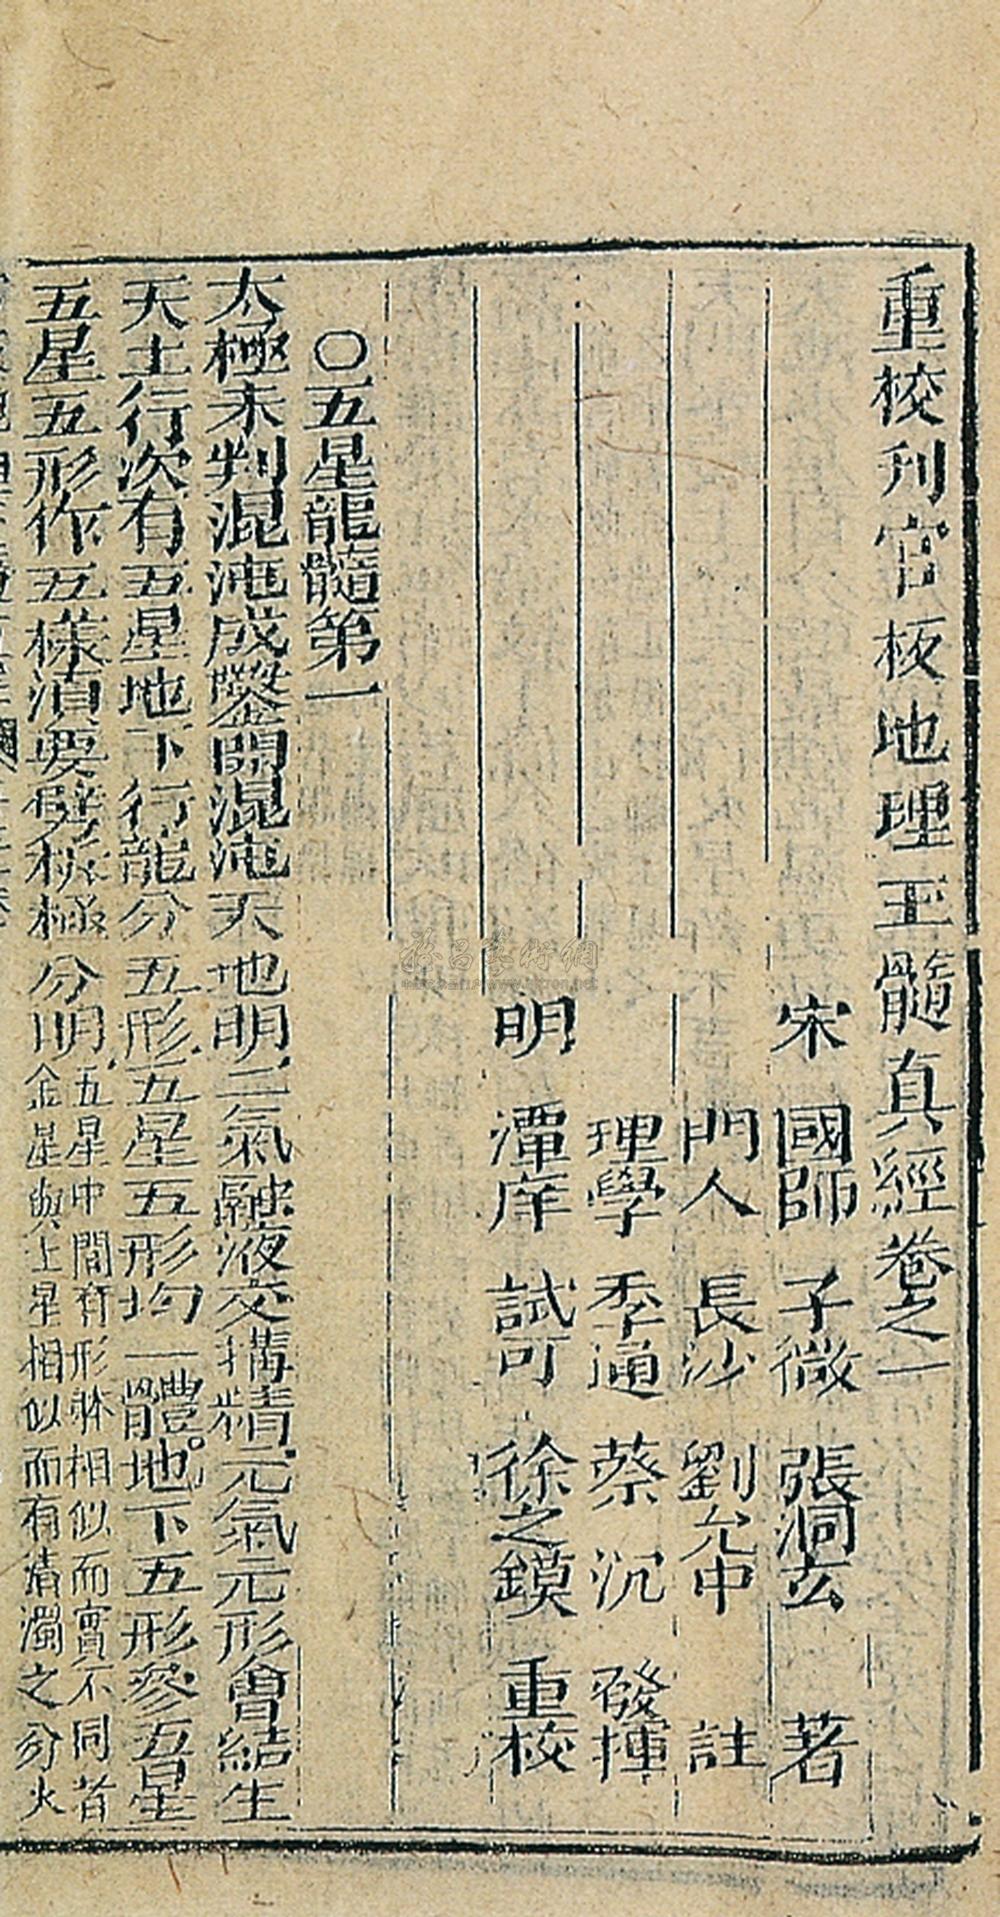 重校刋官板地理玉髓真經卷之一
宋 國師 子微 張洞玄 著
門人 長沙 劉允中 註
理學 季通 蔡沉 發揮
明 潭庠 試可 徐之鏌 重校
○五星龍髓第一
太極未判混沌成鑿開混沌天地明二氣融液交搆精元氣元形會結生
天土行次有五星地下行龍分五形五星五形均一體地下五形參五星
五星五形作五樣湏要劈脉極分明五星中間有形躰相似而實不同者
金星與土星相似而有清濁之分火